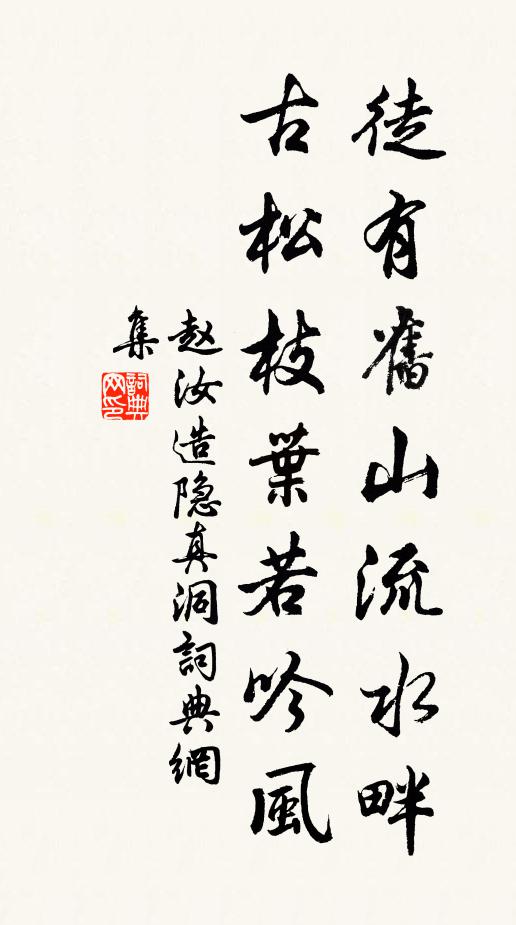 徒有舊山流水畔
古松枝葉若吟風
赵汝造隐真洞詞典網
集
詞典
网印